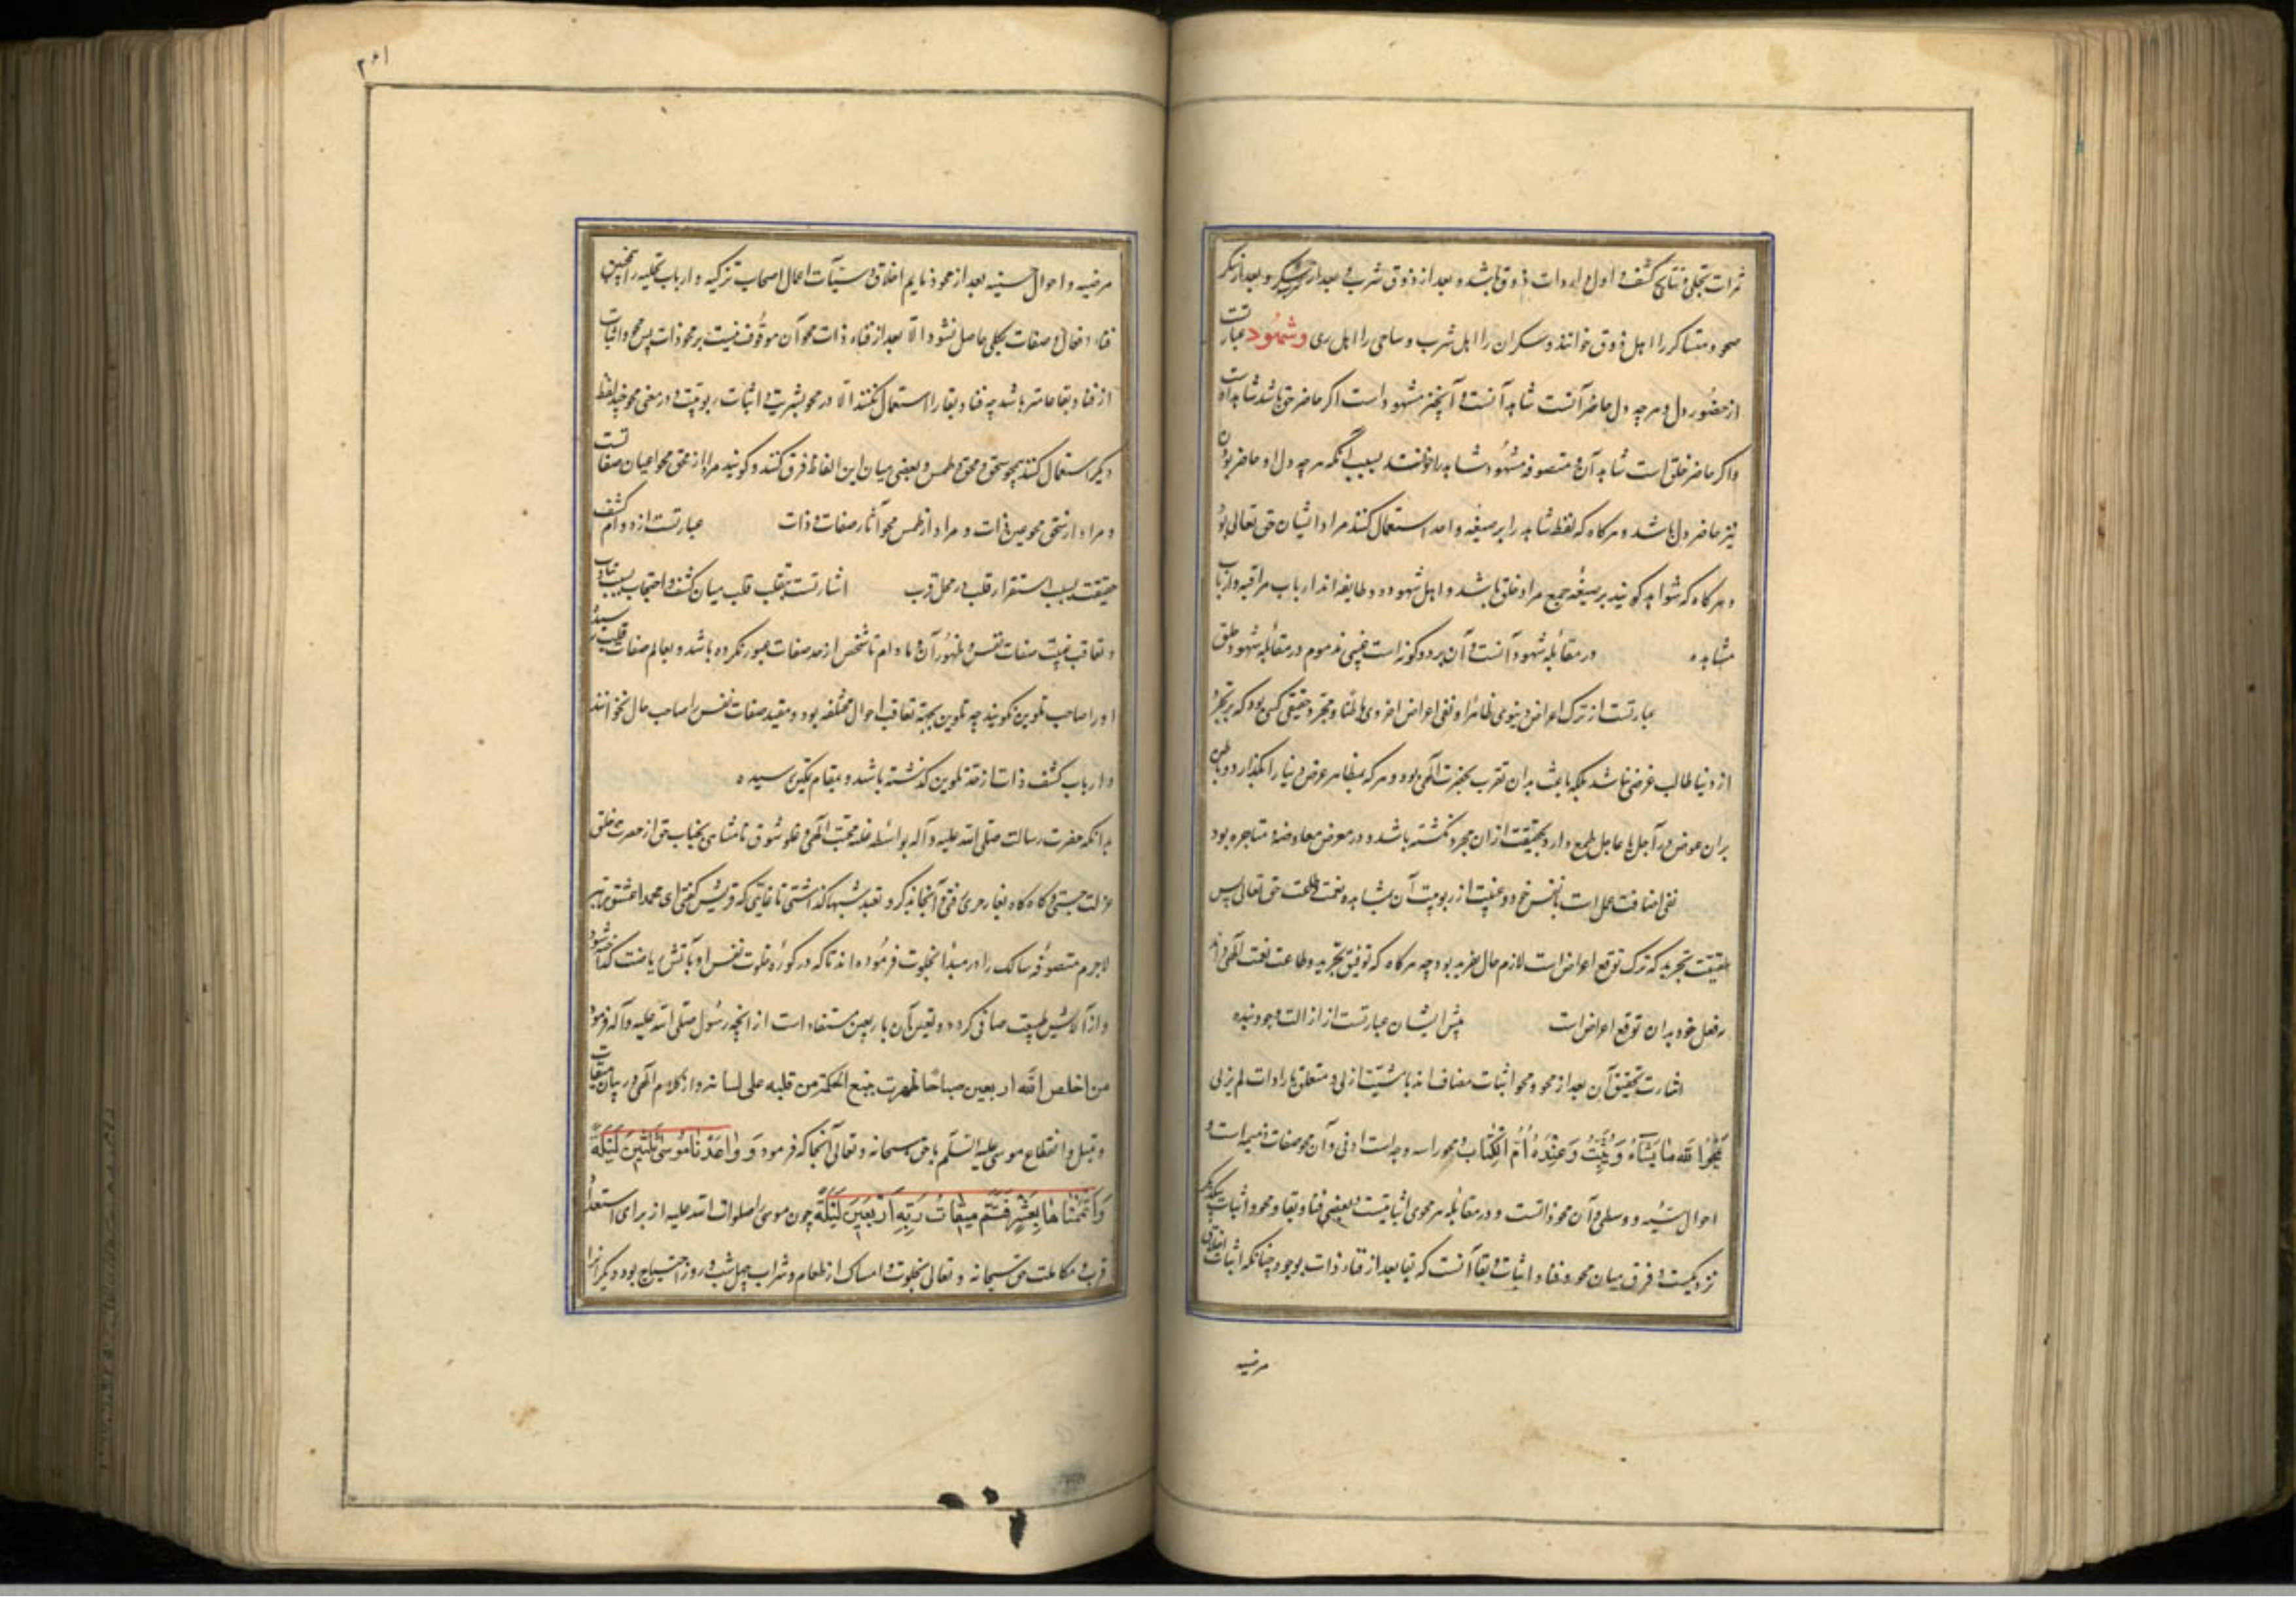 ثمرات تجلی و نتایج کشف و اول واردات ذوق باشد و بعد از ذوق شرب و بعد از شرب سکر و بعد از سکر
صحو و متساکر را اهل ذوق خوانند و سکران را اهل شرب و صاحی را اهل ری و شهود عبارتست
از حضور دل و هر چه دل حاضر آنست شاهد آنست و آنچیز مشهود است اگر حاضر حق باشد شاهد اوست
و اگر حاضر خلق است شاهد آن و متصوفه مشهود را شاهد خوانند بسبب آنکه هر چه دل او حاضر بود آن
نیز حاضر دل باشد و هرگاه که لفظ شاهد را بر صیغه واحد استعمال کنند مراد ایشان حق تعالی بود
و هرگاه که شواهد گویند بر صیغه جمع مراد خلق باشد و اهل شهود دو طایفه اند ارباب مراقبه و ارباب
مشاهده در مقابله شهود آنست و آن بر دو گونه است غیبی مذموم در مقابله شهود حق
عبارتست از ترک اعراض دنیوی ظاهرا و نفی اعراض اخروی باطنا و مجرد حقیقی کسی بود که بر تجرد
از دنیا طالب عوض نباشد بلکه باعث بدان تقرب بحضرت الهی بود و هر که بظاهر عوض دنیا را بگذارد و باطن
بران عوض در آجل یا عاجل طمع دارد بحقیقت از ان مجرد نگشته باشد و در معرض معاوضه و متاجره بود
نفی اضافت عمل است بنفس خود و غیبت از رویت آن بمشاهده نعمت و منت حق تعالی پس
حقیقت تجرید که ترک توقع اعواض است لازم حال تفرید بود چه هرگاه که توفیق تجرید و طاعت نعمت الهی داند
نه فعل خود بدان توقع اعواض است پیش ایشان عبارتست از ازالت وجود بنده
اشارت بتحقیق آن بعد از محو و محو و اثبات مضاف اند با مشیت ازلی و متعلق بارادات لم یزلی
یَمْحُوا اللّٰهُ مَا یَشَاءُ وَیُثْبِتُ وَعِنْدَهُ اُمُّ الْکِتَابِ و محو را سه درجه است ادنی و آن محو صفات ذمیمه است و
احوال سیئه و وسطی و آن محو ذاتست و در مقابله هر محوی اثباتیست و بعضی فنا و بقا و محو و اثبات بیکدیگر
نزدیکست و فرق میان محو و فنا و اثبات و بقا آنست که بقا بعد از فناء ذات بوجود چنانکه اثبات اخلاق
مرضیه
۲۶۱
مرضیه و احوال سنیه بعد از محو ذمایم اخلاق و سیئات اعمال اصحاب تزکیه و ارباب تحلیه را همچنین
فناء افعال و صفات بکلی حاصل نشود الا بعد از فناء ذات و محو آن موقوف نیست بر محو ذات پس محو و اثبات
از فنا و بقا عامتر باشد چه فنا و بقا را استعمال نکنند الا در محو بشریت و اثبات ربوبیت و در معنی محو چند لفظ
دیگر استعمال کنند چو سحق و محق و طمس و بعضی میان این الفاظ فرق کنند و گویند مراد از محق محو اعیان صفاتست
و مراد از سحق محو عین ذات و مراد از طمس محو آثار صفات و ذات عبارتست از دوام کشف
حقیقت بسبب استقرار قلب در محل قرب اشارتست بتقلب قلب میان کشف و احتجاب بسبب تناوب
و تعاقب غیبت صفات نفس و ظهور آن و مادام تا شخص از حد صفات عبور نکرده باشد و بعالم صفات قلب نرسیده
او را صاحب تلوین نگویند چه تلوین بجهة تعاقب احوال مختلفه بود و مقید صفات نفس را صاحب حال نخوانند
و ارباب کشف ذات از حد تلوین گذشته باشد و بمقام تمکین رسیده
بدانکه حضرت رسالت صلی الله علیه و آله بواسطه غلبه محبت الهی و غلو شوق نامتناهی بجناب حق از معرت خلق
عزلت جستی و گاه گاه بغار حری رفتی و آنجا بذکر و تعبد شبها گذاشتی تا غایتی که قریش گفتی ای محمدا عشق ربه
لاجرم متصوفه سالک را در مبدأ بخلوت فرموده اند تا که در کوره خلوت نفس او بآتش ریاضت گداخته شود
و از آلایش طبیعت صافی گردد و تعیین آن باربعین مستفاد است از آنچه رسول صلی الله علیه و آله فرمود
من اخلص لله اربعین صباحا ظهرت ینابیع الحکمة من قلبه علی لسانه و از کلام الهی در بیان میقات
و تبتل و انقطاع موسی علیه السلم با حق سبحانه و تعالی آنجا که فرمود وَ وَاعَدْنَا مُوسٰی ثَلٰثِینَ لَیْلَةً
وَاَتْمَمْنَاهَا بِعَشْرٍ فَتَمَّ مِیقَاتُ رَبِّهِ اَرْبَعِینَ لَیْلَةً چون موسی صلوات الله علیه از برای استعداد
قرب و مکالمت حق سبحانه و تعالی بخلوت و امساک از طعام و شراب چهل شب و روز احتیاج بود دیگرانرا